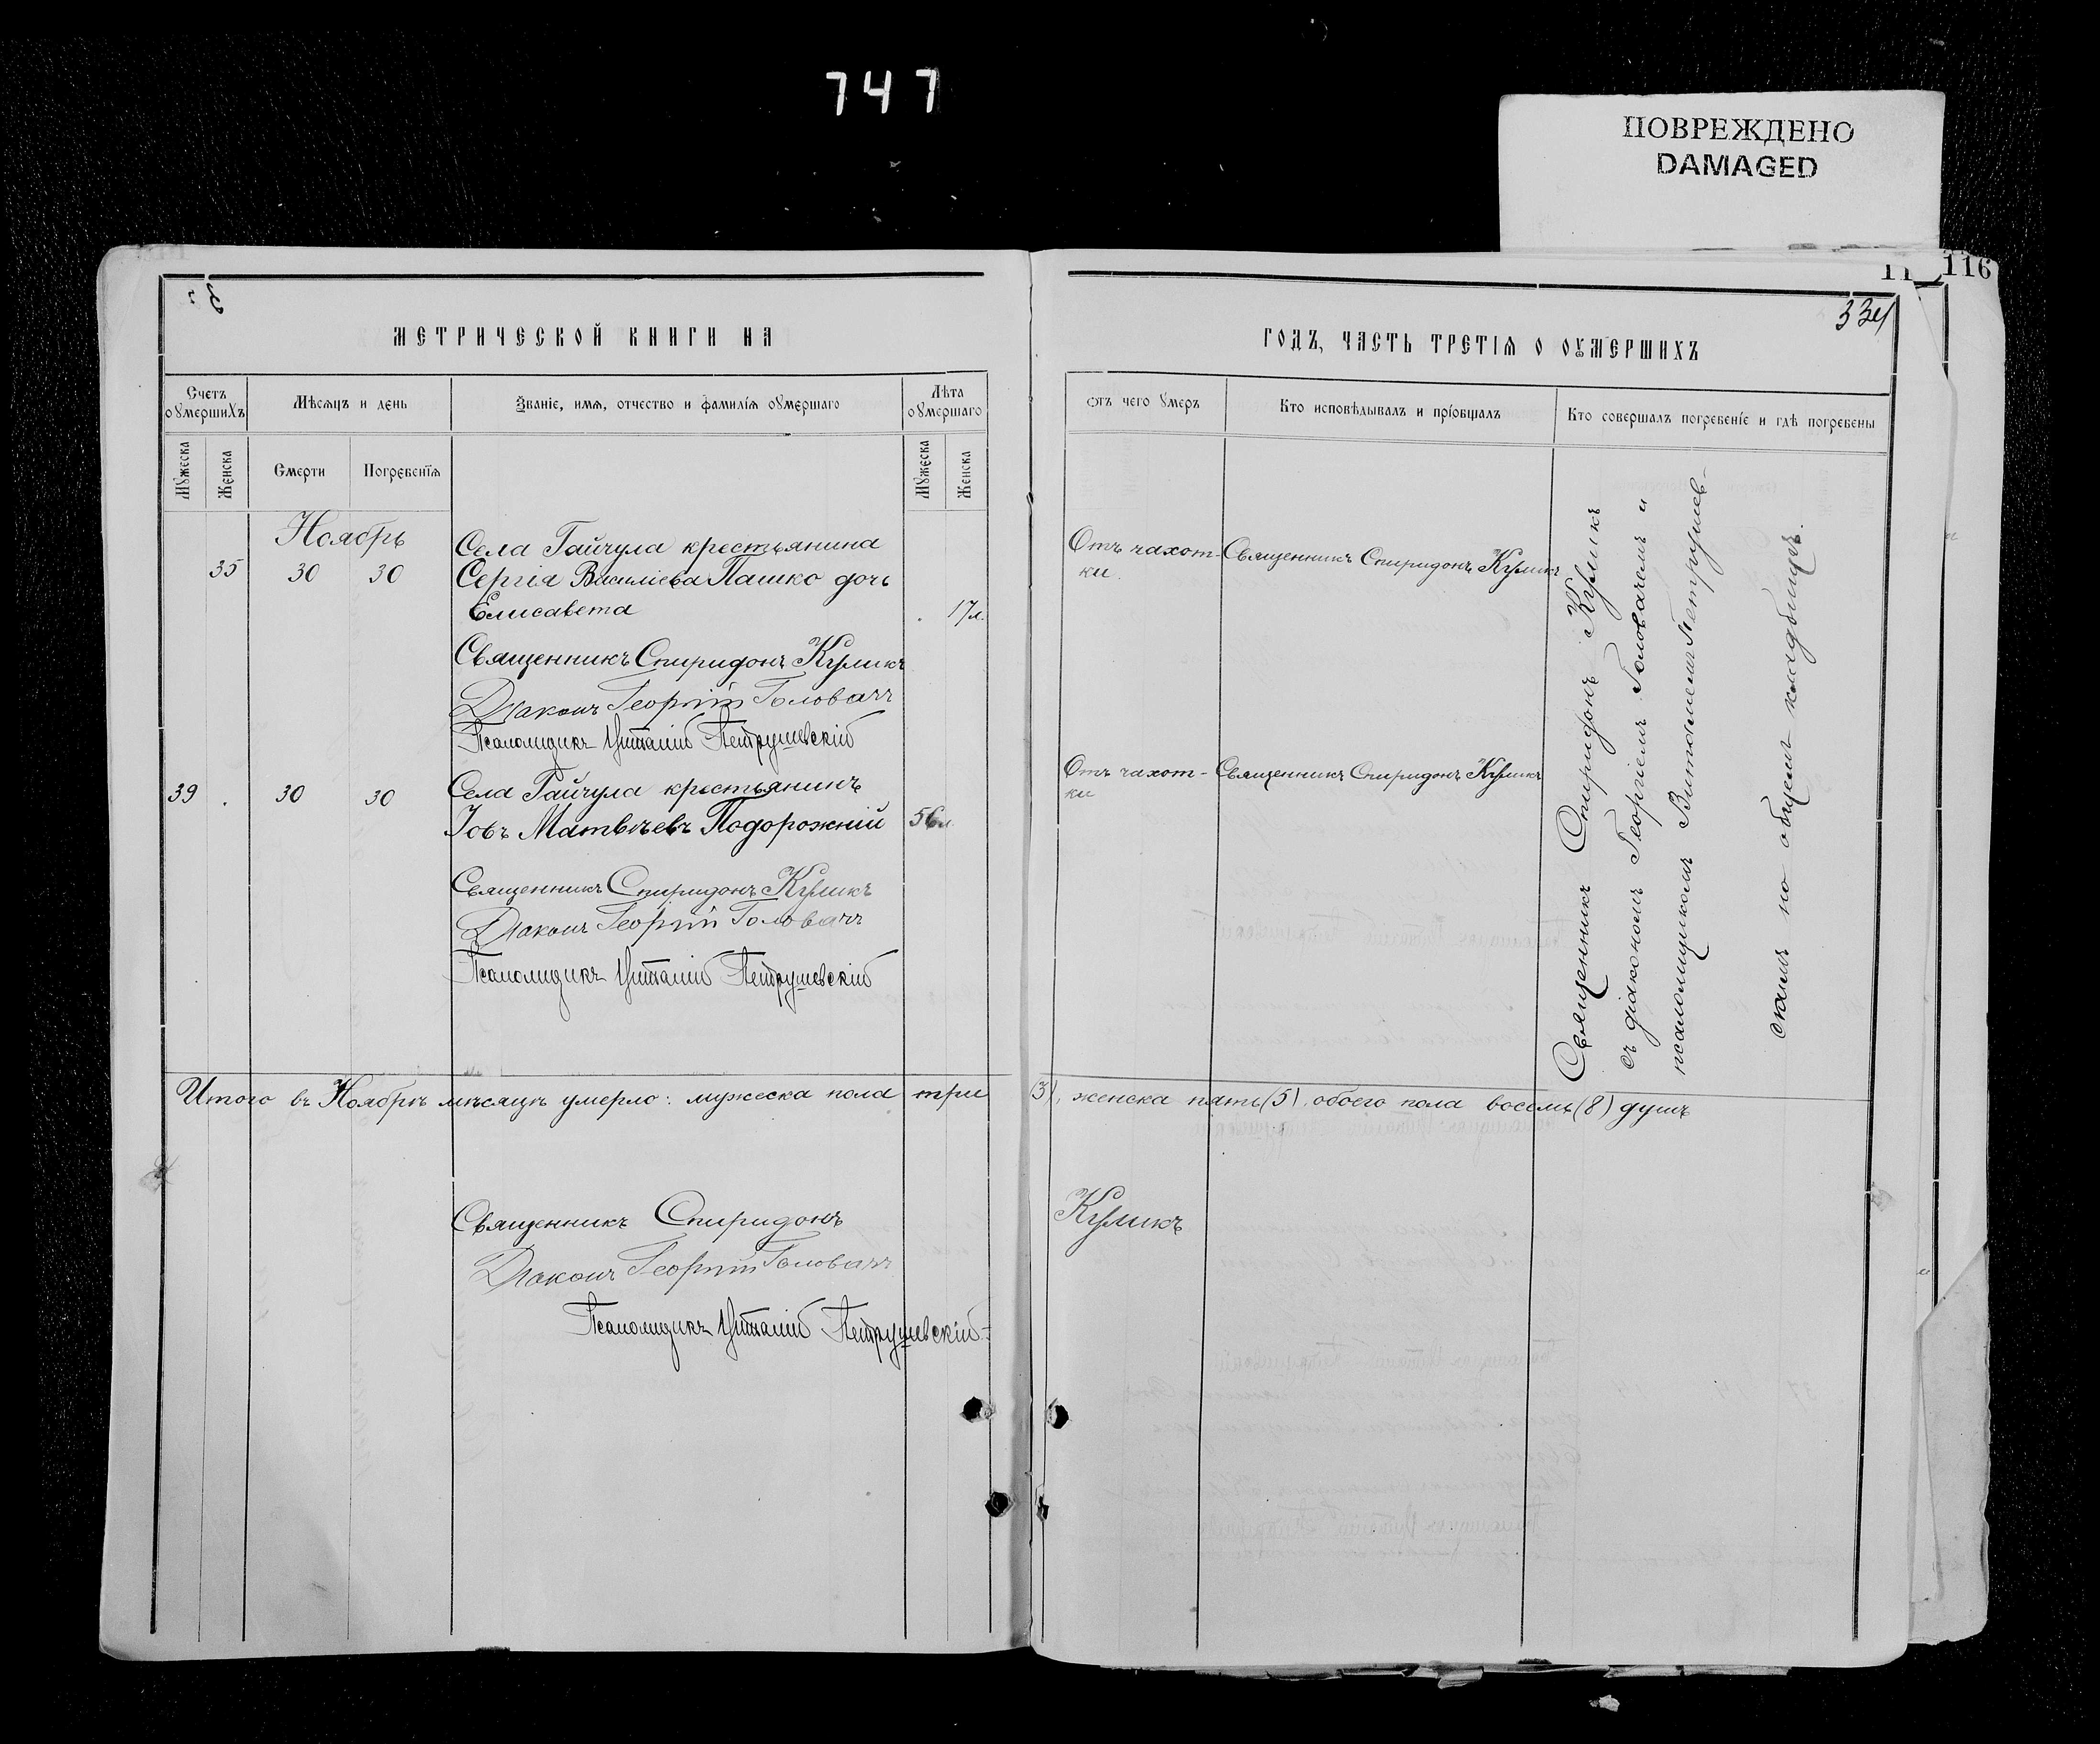 747
ПОВРЕЖДЕНО
DAMAGED
116
334
МЕТРИЧЕСКОЙ КНИГИ НА
ГОДЪ, ЧАСТЬ ТРЕТІЯ О ОУМЕРШИХЪ
Счетъ оумершихъ
Мѣсяцъ и день
Званіе, имя, отчество и фамилія оумершаго
Лѣта оумершаго
Мужеска
Женска
Смерти
Погребенія
Мужеска
Женска
Отъ чего умеръ
Кто исповѣдывалъ и пріобщалъ
Кто совершалъ погребеніе и гдѣ погребены
Ноябрь
35 30 30
Села Гайчула крестьянина
Сергія Василіева Пашко дочь
Елисавета
17 л.
Отъ чахот-
ки.
Священникъ Спиридонъ Куликъ
Священникъ Спиридонъ Куликъ
Діаконъ Георгій Головачъ
Псаломщикъ Виталій Петрушевскій
39 . 30 30
Села Гайчула крестьянинъ
Іовъ Матвѣевъ Подорожній
56 л.
Отъ чахот-
ки
Священникъ Спиридонъ Куликъ
Священникъ Спиридонъ Куликъ
Діаконъ Георгій Головачъ
Псаломщикъ Виталій Петрушевскій
Священникъ Спиридонъ Куликъ
съ діакономъ Георгіемъ Головачемъ и
псаломщикомъ Виталіемъ Петрушев-
скимъ на общемъ кладбищѣ.
Итого въ Ноябрѣ мѣсяцѣ умерло: мужеска пола три (3), женска пять (5), обоего пола восемь (8) душъ
Священникъ Спиридонъ Куликъ
Діаконъ Георгій Головачъ
Псаломщикъ Виталій Петрушевскій